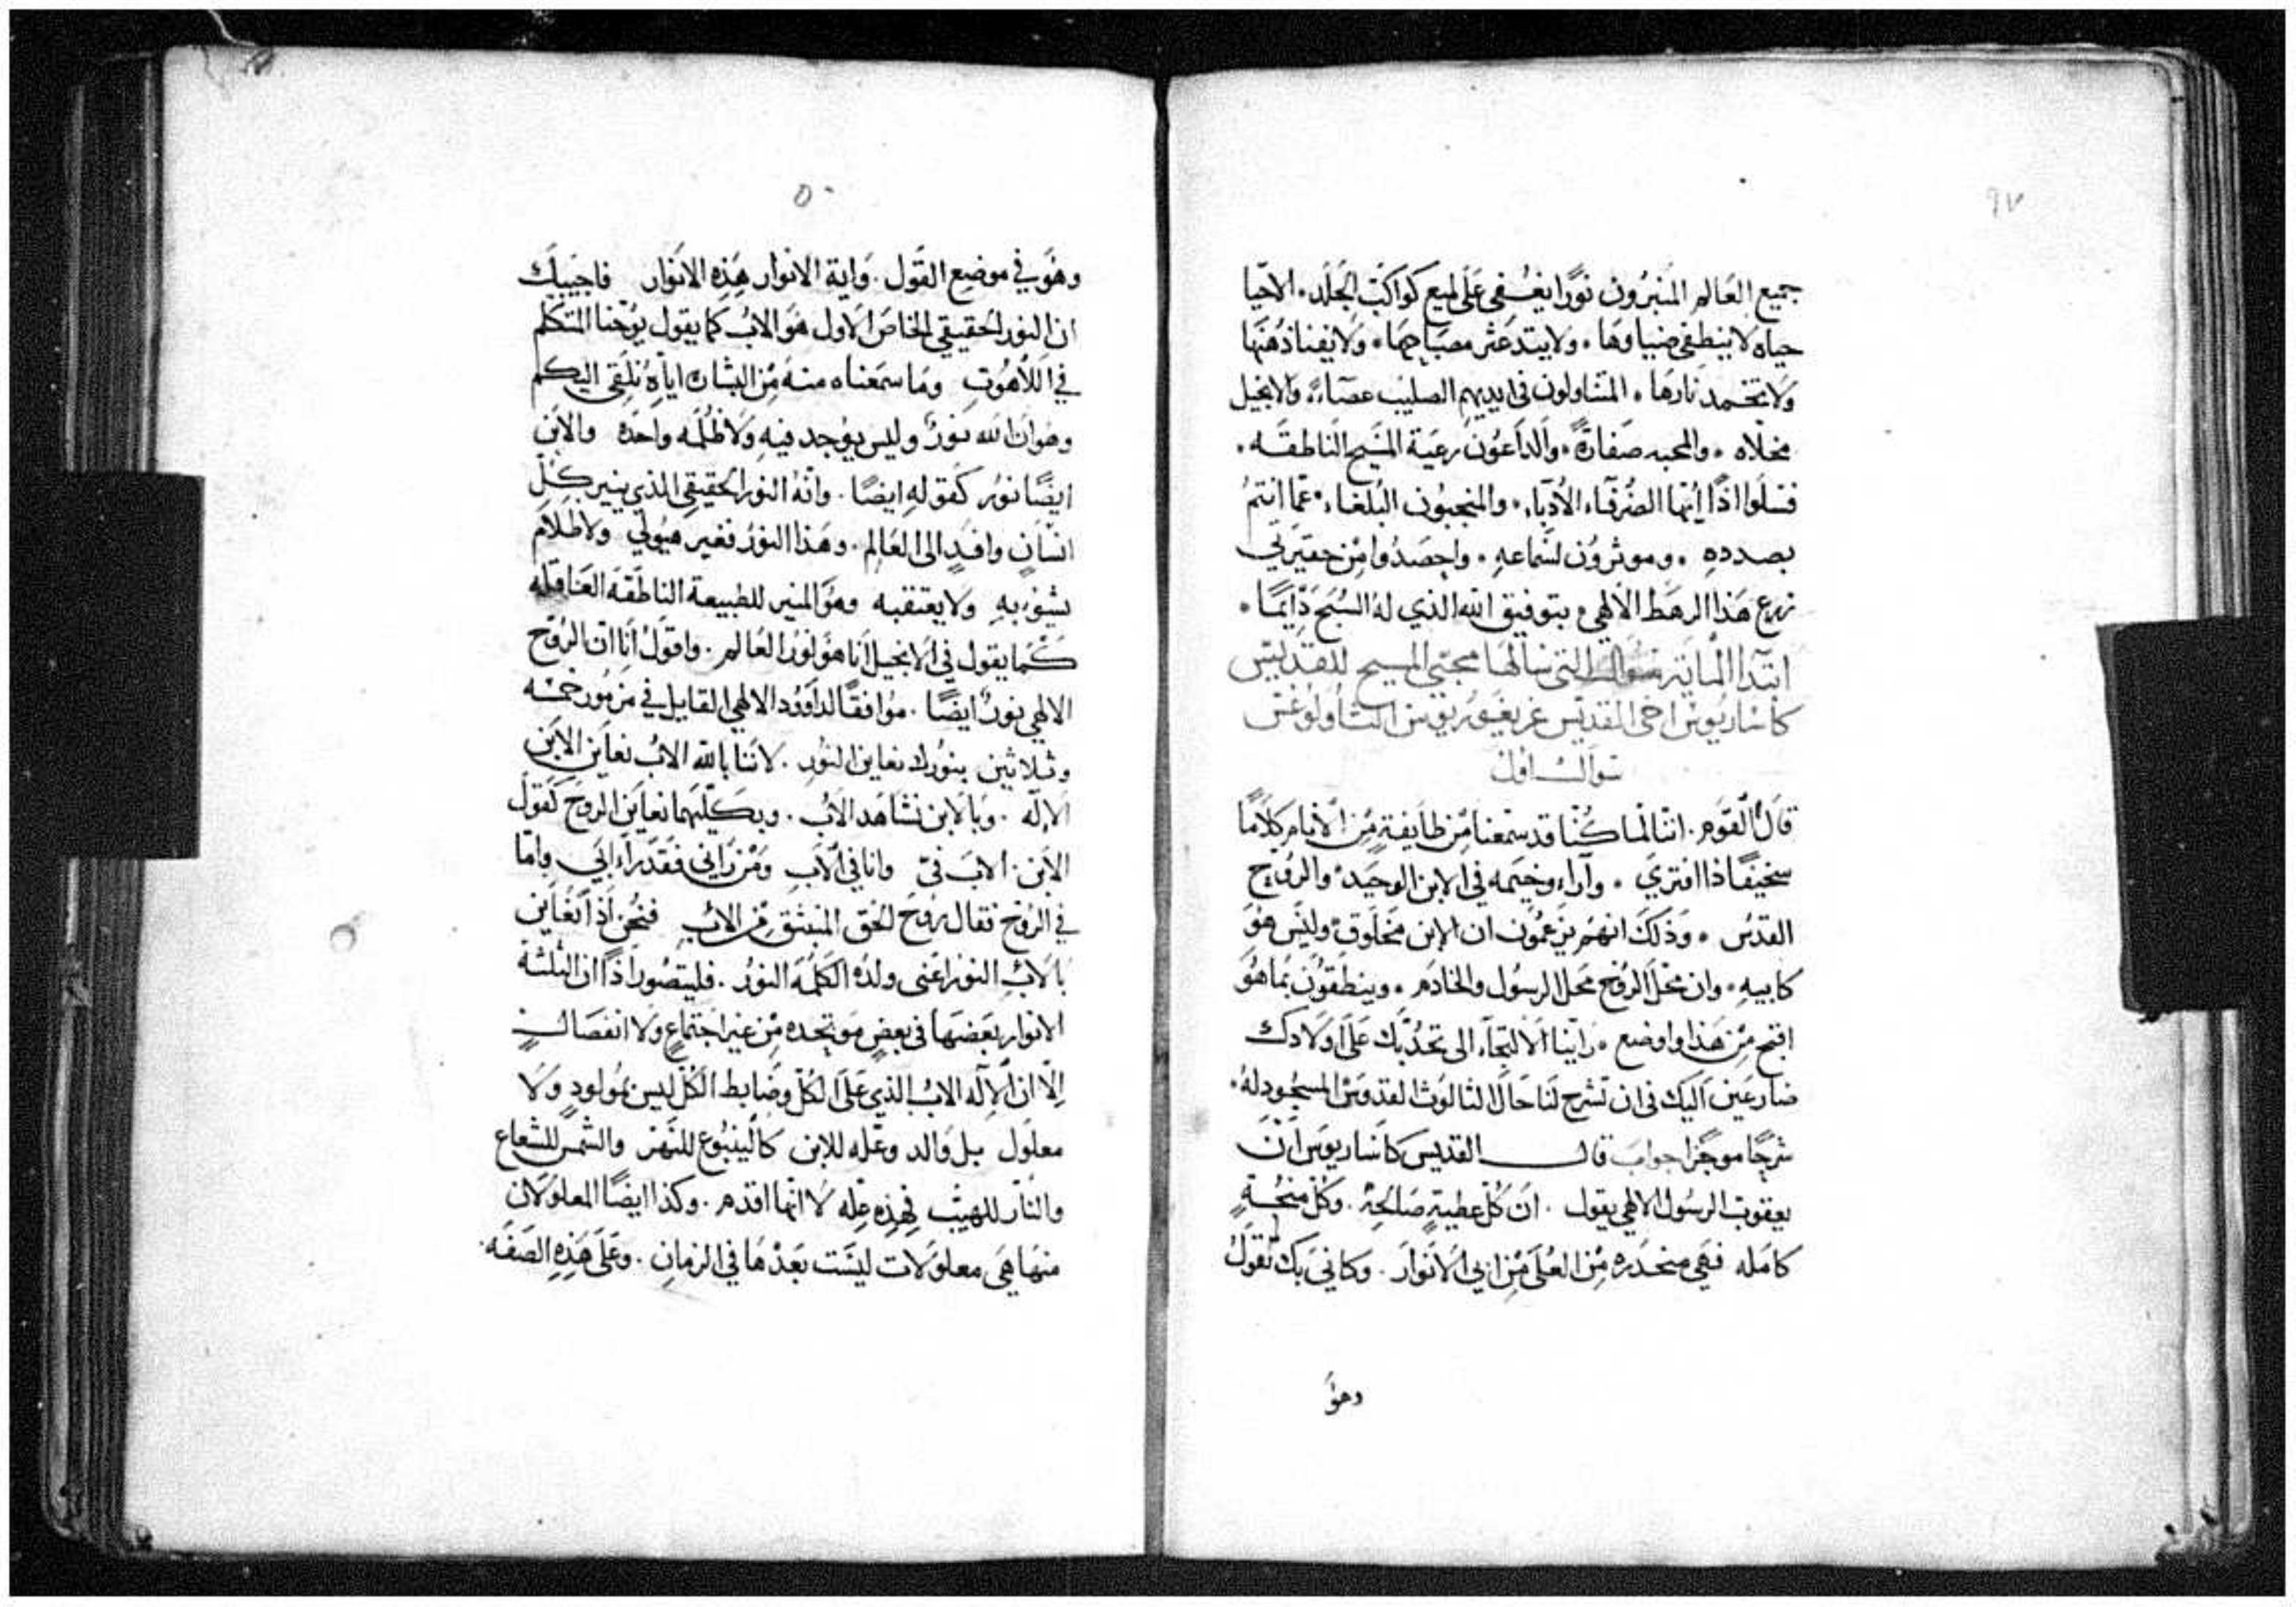 ٩٧
جميع العَالم المنيرُون نورًا يغسفى عَلى لميع كواكب الجَلَد. الاحيا
حياه لا ينطفى ضياوهَا. ولا يتدعثر مصبَاحهَا. ولا يفنا دُهنهَا
ولا تخمد نارهَا. المتناولون فى ايديهم الصليب عصَاءً. والانجيل
مخلاه. والمحبه صفارةً. والداعُون رعيَة المسيح الناطقَه.
فسَلُوا اذًا ايُّها الصُرفَاء الأدبَاء. والمنجبُون البُلغاء. عَمّا انتمُ
بصددهِ. وموثروُن لسَماعهِ. واحصدُوا مِن حقيرتي
زرع هَذا الرهَط الالهي. بتوفيق الله الذي له السُبحَ دَايمًا.
ابتدآ الماية سُوَال التى سَالهَا محبّي المسيح للقديس
كاساريوس اخى القديس غريغوريوس الثاولوغس
سوال اول
قالَ القَوم. اننا لما كُنّا قد سمعنا مِن طايفةٍ مِن الأنام كلامًا
سخيفًا ذا افترى. وآراء وخيمه فى الابن الوحيد. والروُح
القدس. وَذلكَ انهم يزعمُون ان الابن مَخلوق. وليسَ هوَ
كابيهِ. وان محَل الروُح محَل الرسُول والخادم. وينطقوُن بمَا هوَ
اقبح مِن هَذا واوضع. رَاينا الالتجَاء الى تحدُّبكَ عَلى اولادك
ضارعَين اليكَ فى ان تشرح لنا حَال الثالوُث القدوس المسجُود لهُ.
شرحًا موجزًا جوابَ قال القديس كاساريوس انّ
يعقوب الرسُول الالهي يقول. ان كُل عَطيةٍ صَالحةٍ. وكُل منحَةٍ
كامَله فهَي منحَدره مِن العُلَى مِن ابي الانوَار. وكاني بَك تقولُ
وهوَ
٥٠
وهَوَ في موضع القَول. وَاية الانوار هَذِه الانوَار فاجيبكَ
ان النور الحقيقي الخاصَ الاول هَو الابُ كما يقول يوُحنا المتكلم
في اللاهُوتِ ومَا سمَعناه منهُ مِن البشارهَ اياهُ نلقى اليكم
وهوَ ان الله نورٌ وليس يوُجد فيهِ ولا ظُلمَه واحدَه والابن
ايضًا نوُر كقولهِ ايضًا. وانهُ النور الحقيقي الذي ينير بكُلِ
انسَانٍ وافدٍ الى العَالم. وهَذا النورُ فغير هيُولي ولا ظلام
يشوُبهِ ولا يعتقبه وهوَ المنير للطبيعة الناطقَه العَاقله
كما يقول في الانجيل انا هو نورُ العَالم. واقولُ انا ان الروُح
الالهي نورٌ ايضًا. موُافقًا لداوود الالهي القايل في مزموُر خمسَه
وثلاثين بنوُرك نعاين النوُر. لاننا بالله الابُ نعاين الابن
الالَه. وَبالابن نشَاهد الابُ. وبكليهمَا نعاين الروح كقول
الابن. الابَ فيّ وانا في الابِ ومَن رَاني فقَد رَاء ابي وامّا
في الروُح فقال روُح الحَق المنبثق مِن الابُ فنحُن اذًا نعُاين
بالابِ النورُ اعَنى ولدُه الكلمَه النورُ. فليتصوُر اذًا ان الثلثة
الانوار بعَضهَا فى بعضٍ موَيحَده مِن غير اجَتماعٍ وَلا انفصَال
الّا ان الاله الابُ الذي عَلى الكُل وضَابط الكُل ليس بموُلودٍ ولا
معلوُل بل والد وعَله للابن كالينبُوع للنهر والشمس للشعاع
والنار للهيب فهذِه علِه لا انها اقدم. وكذا ايضًا المعلولات
منهَا هَي معلوَلات ليسَت بعَدهَا في الزمانِ. وعَلى هَذِه الصفَه.